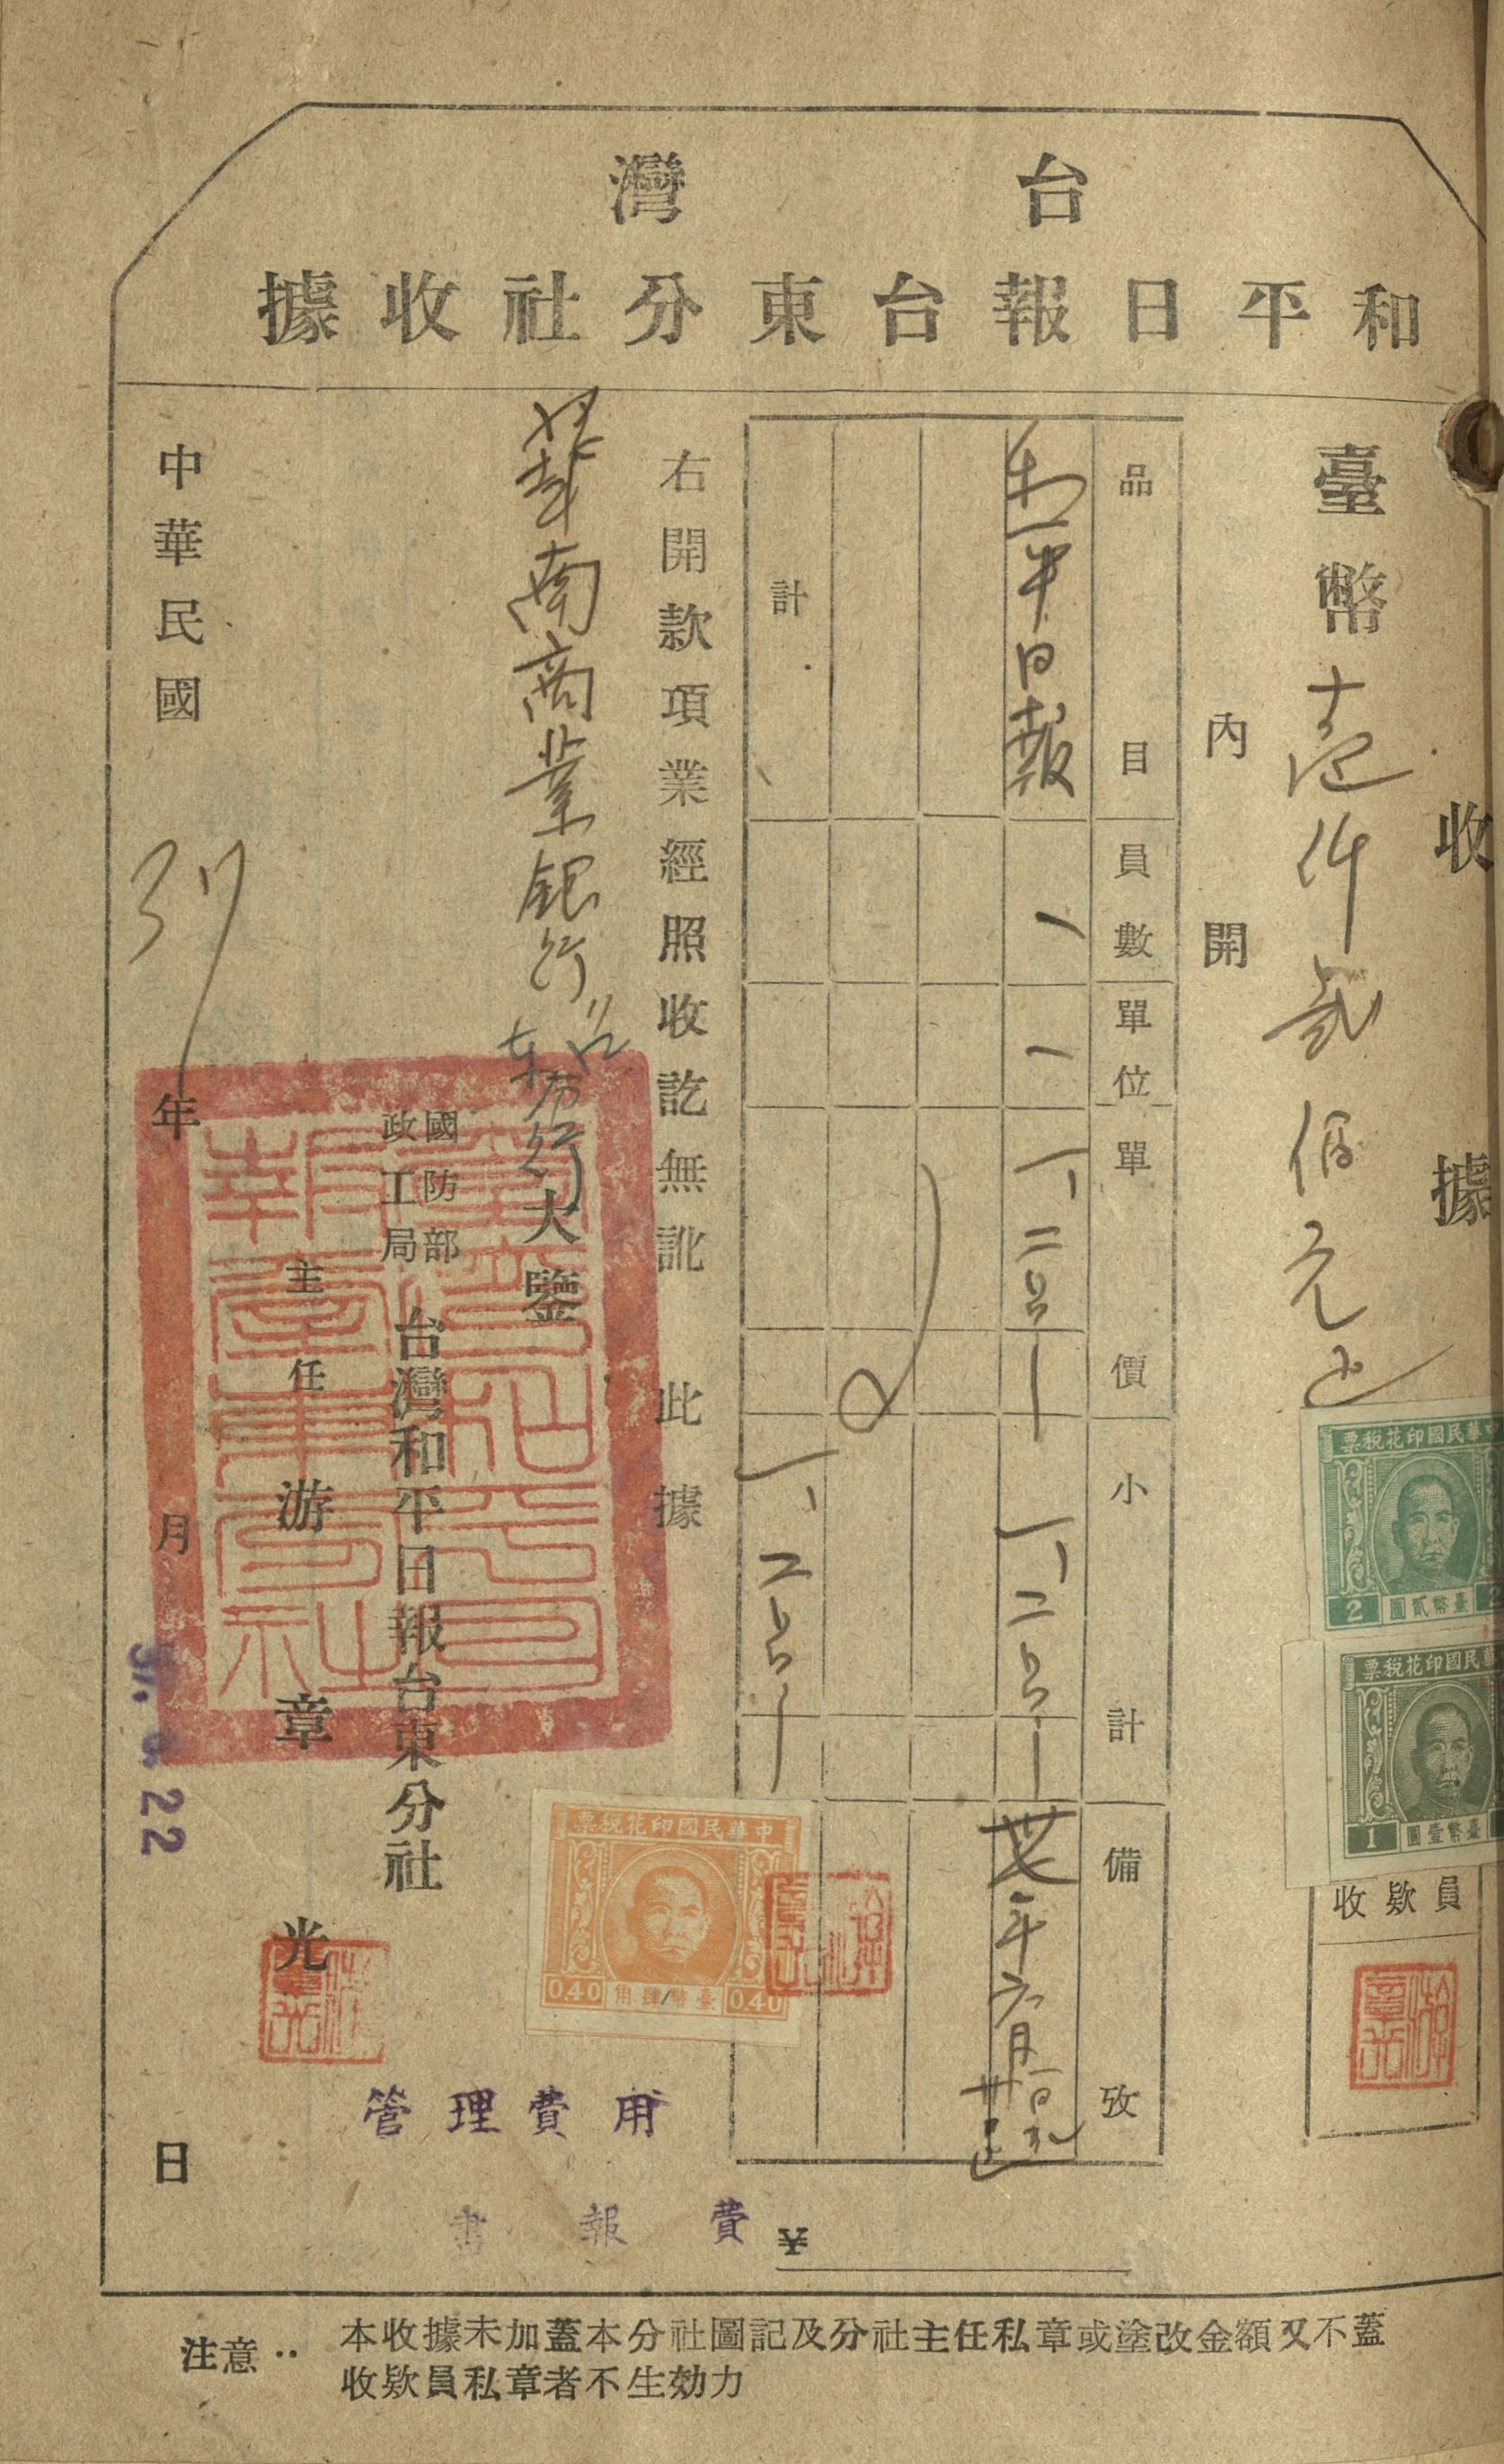 台灣
和平日報台東分社收據
收據
臺幣壹仟貳佰元正
內開
品目 員數 單位 單價 小計 備攷
和平日報 一 一 1,200- 1,200- 卅七年六月
計 1,200-
右開款項業經照收訖無訛此據
華南商業銀行台東分行大鑒
國防部
政工局
台灣和平日報台東分社
主任 游章光
中華民國37年 月 日
22
中華民國印花稅票
2 臺幣貳圓
中華民國印花稅票
1 臺幣壹圓
收欵員
中華民國印花稅票
0.40 臺幣肆角 0.40
管理費用
書報費 ¥
注意:本收據未加蓋本分社圖記及分社主任私章或塗改金額又不蓋
收欵員私章者不生効力